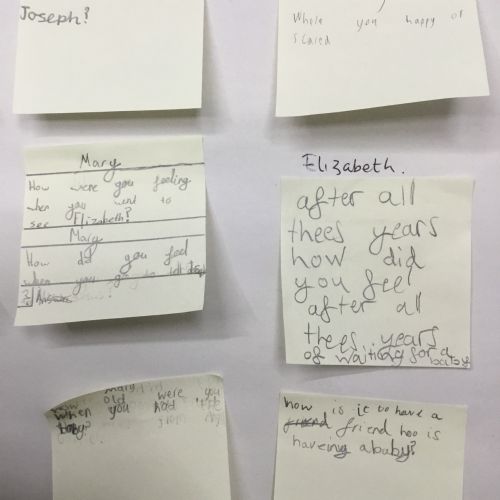 Joseph?
Whole you happy or
scared
Mary
How were you feeling
when you went to
see Elizabeth?
Mary
How did you feel
when you
Elizabeth.
after all
thees years
how did
you feel
after all
thees years
of waiting for a
baby
Mary
how old were you
when you had the
baby?
how is it to have a
friend hoo is
haveing a baby?